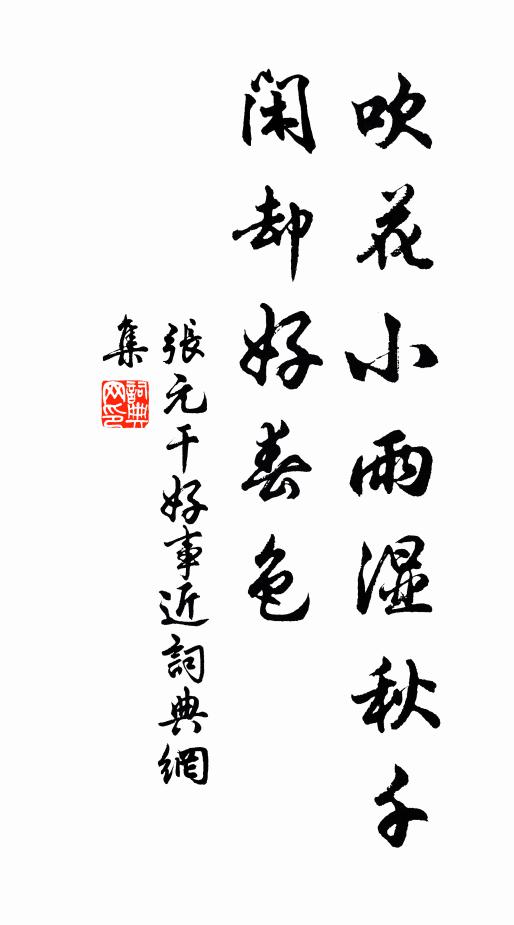 吹花小雨湿秋千
闲却好春色
張元干好事近詞典網
集
詞典
网印